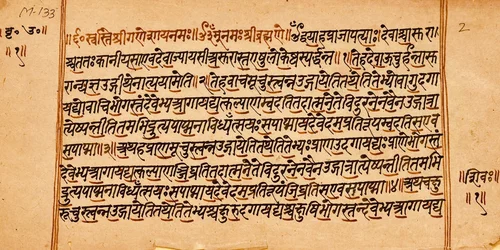 M-133
2
बृ॰उ॰
॥१॥
॥६०स्वस्तिश्रीगणेशायनमः॥ॐनमःश्रीब्रह्मणे॥ॐद्वयाहप्राजापत्याः॥देवाश्चासुरा
श्चततःकानीयसाएवदेवाज्यायसाअसुरास्तएषुलोकेष्वस्पर्धन्त॥१॥तेहदेवाऊचुर्हन्तासु
रान्यज्ञउद्गीथेनात्ययामेति॥२॥तेहवाचमूचुस्त्वन्नउद्गायेतितथेतितेभ्योवागुदगा
यद्योवाचिभोगस्तंदेवेभ्यआगायद्यत्कल्याणम्वदतितदात्मनेतेविदुरनेनवैनउद्गात्रा
त्येष्यन्तीतितमभिद्रुत्यपाप्मनाविध्यन्त्सयःसपाप्मायदेवेदमप्रतिरूपम्वदतिसएव
सपाप्मा॥३॥अथहप्राणमूचुस्त्वन्नउद्गायेतितथेतितेभ्यःप्राणउदगायद्यःप्राणेभोगस्तं
देवेभ्यआगायद्यत्कल्याणञ्जिघ्रतितदात्मनेतेविदुरनेनवैनउद्गात्रात्येष्यन्तीतितमभि
द्रुत्यपाप्मनाविध्यन्त्सयःसपाप्मायदेवेदमप्रतिरूपञ्जिघ्रतिसएवसपाप्मा॥४॥अथहचक्षु
रूचुस्त्वन्नउद्गायेतितथेतितेभ्यश्चक्षुरुदगायद्यश्चक्षुषिभोगस्तन्देवेभ्यआगायद्य
॥शिवः॥
॥१॥